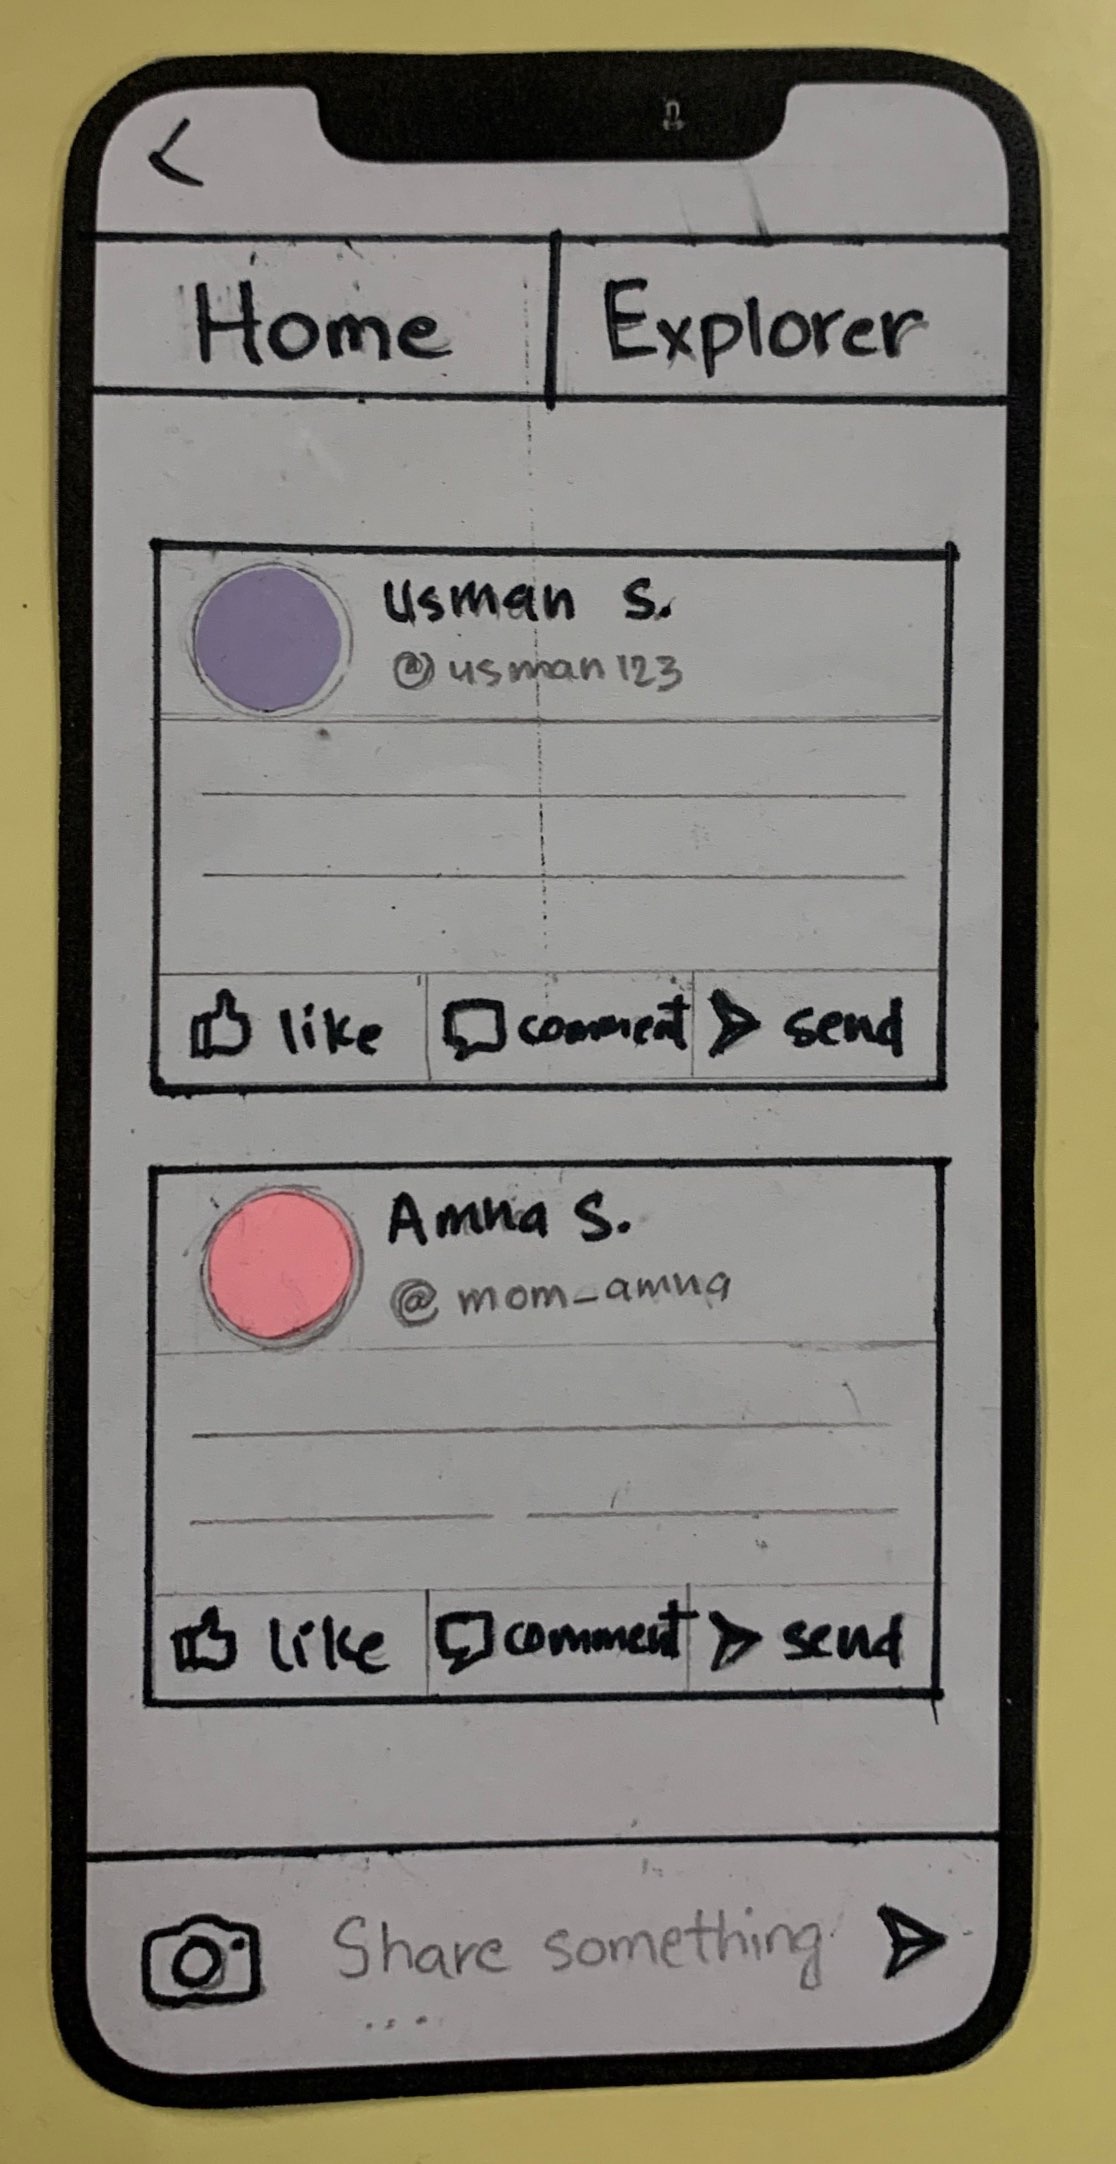 Home Explorer
Usman S.
@usman123
like comment send
Amna S.
@mom_amna
like comment send
Share something
...